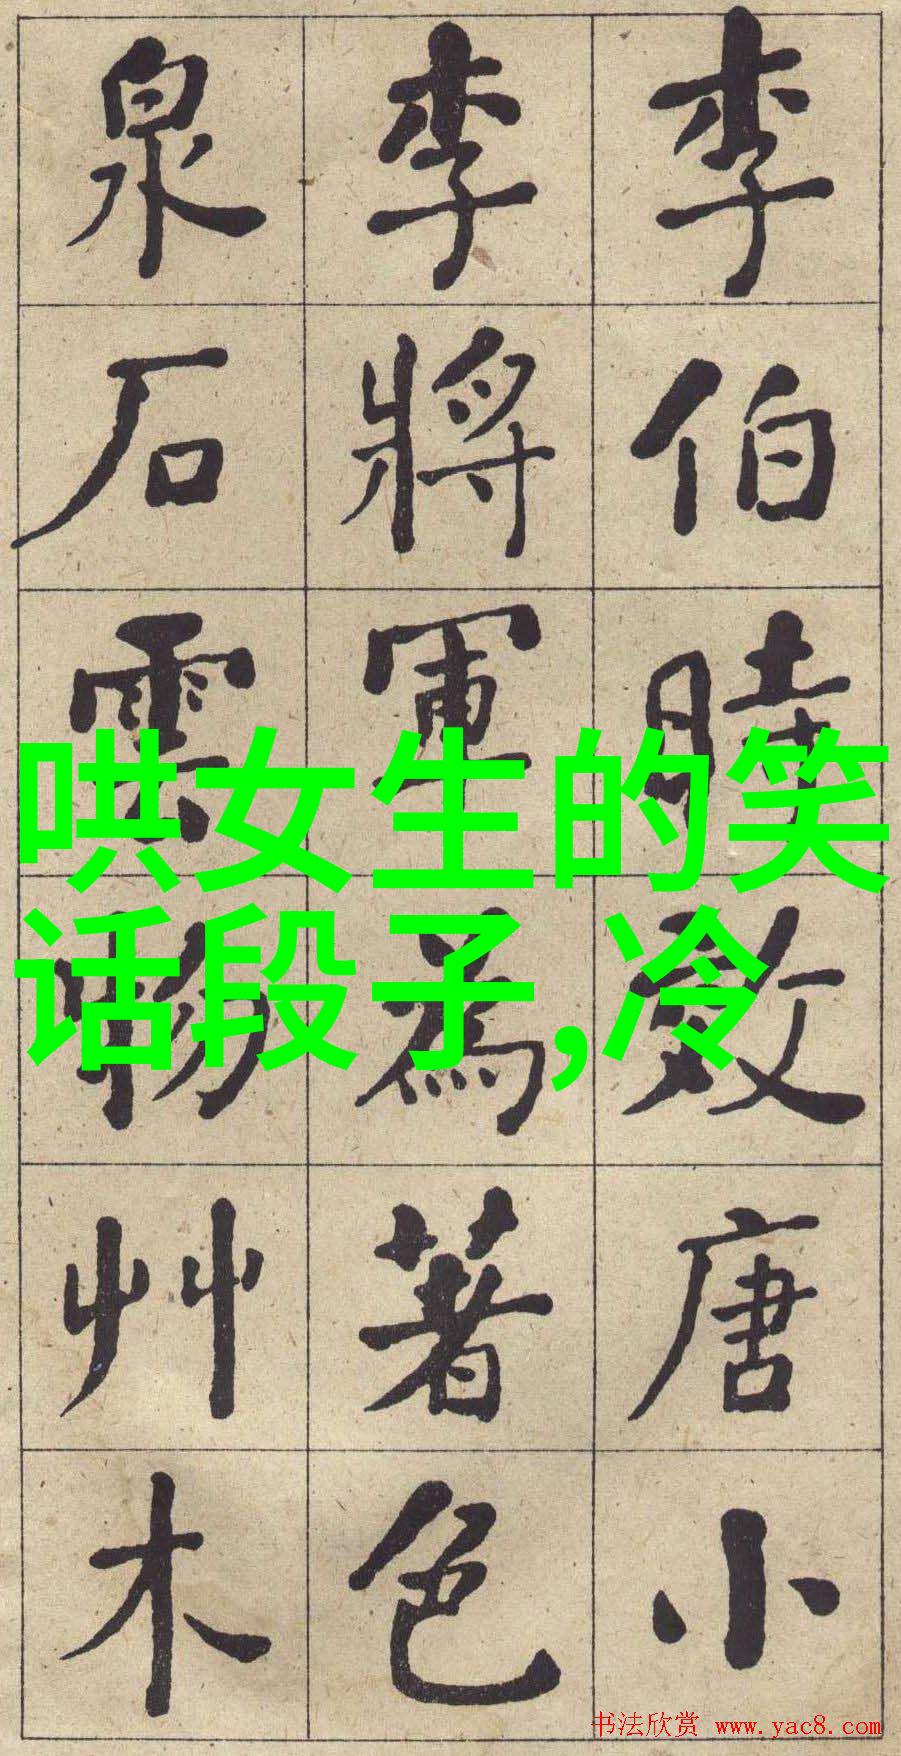 李伯時效唐小
李將軍為著色
泉石雲物艸木
哄女生的笑
话段子,冷
书法欣赏 www.yac8.com